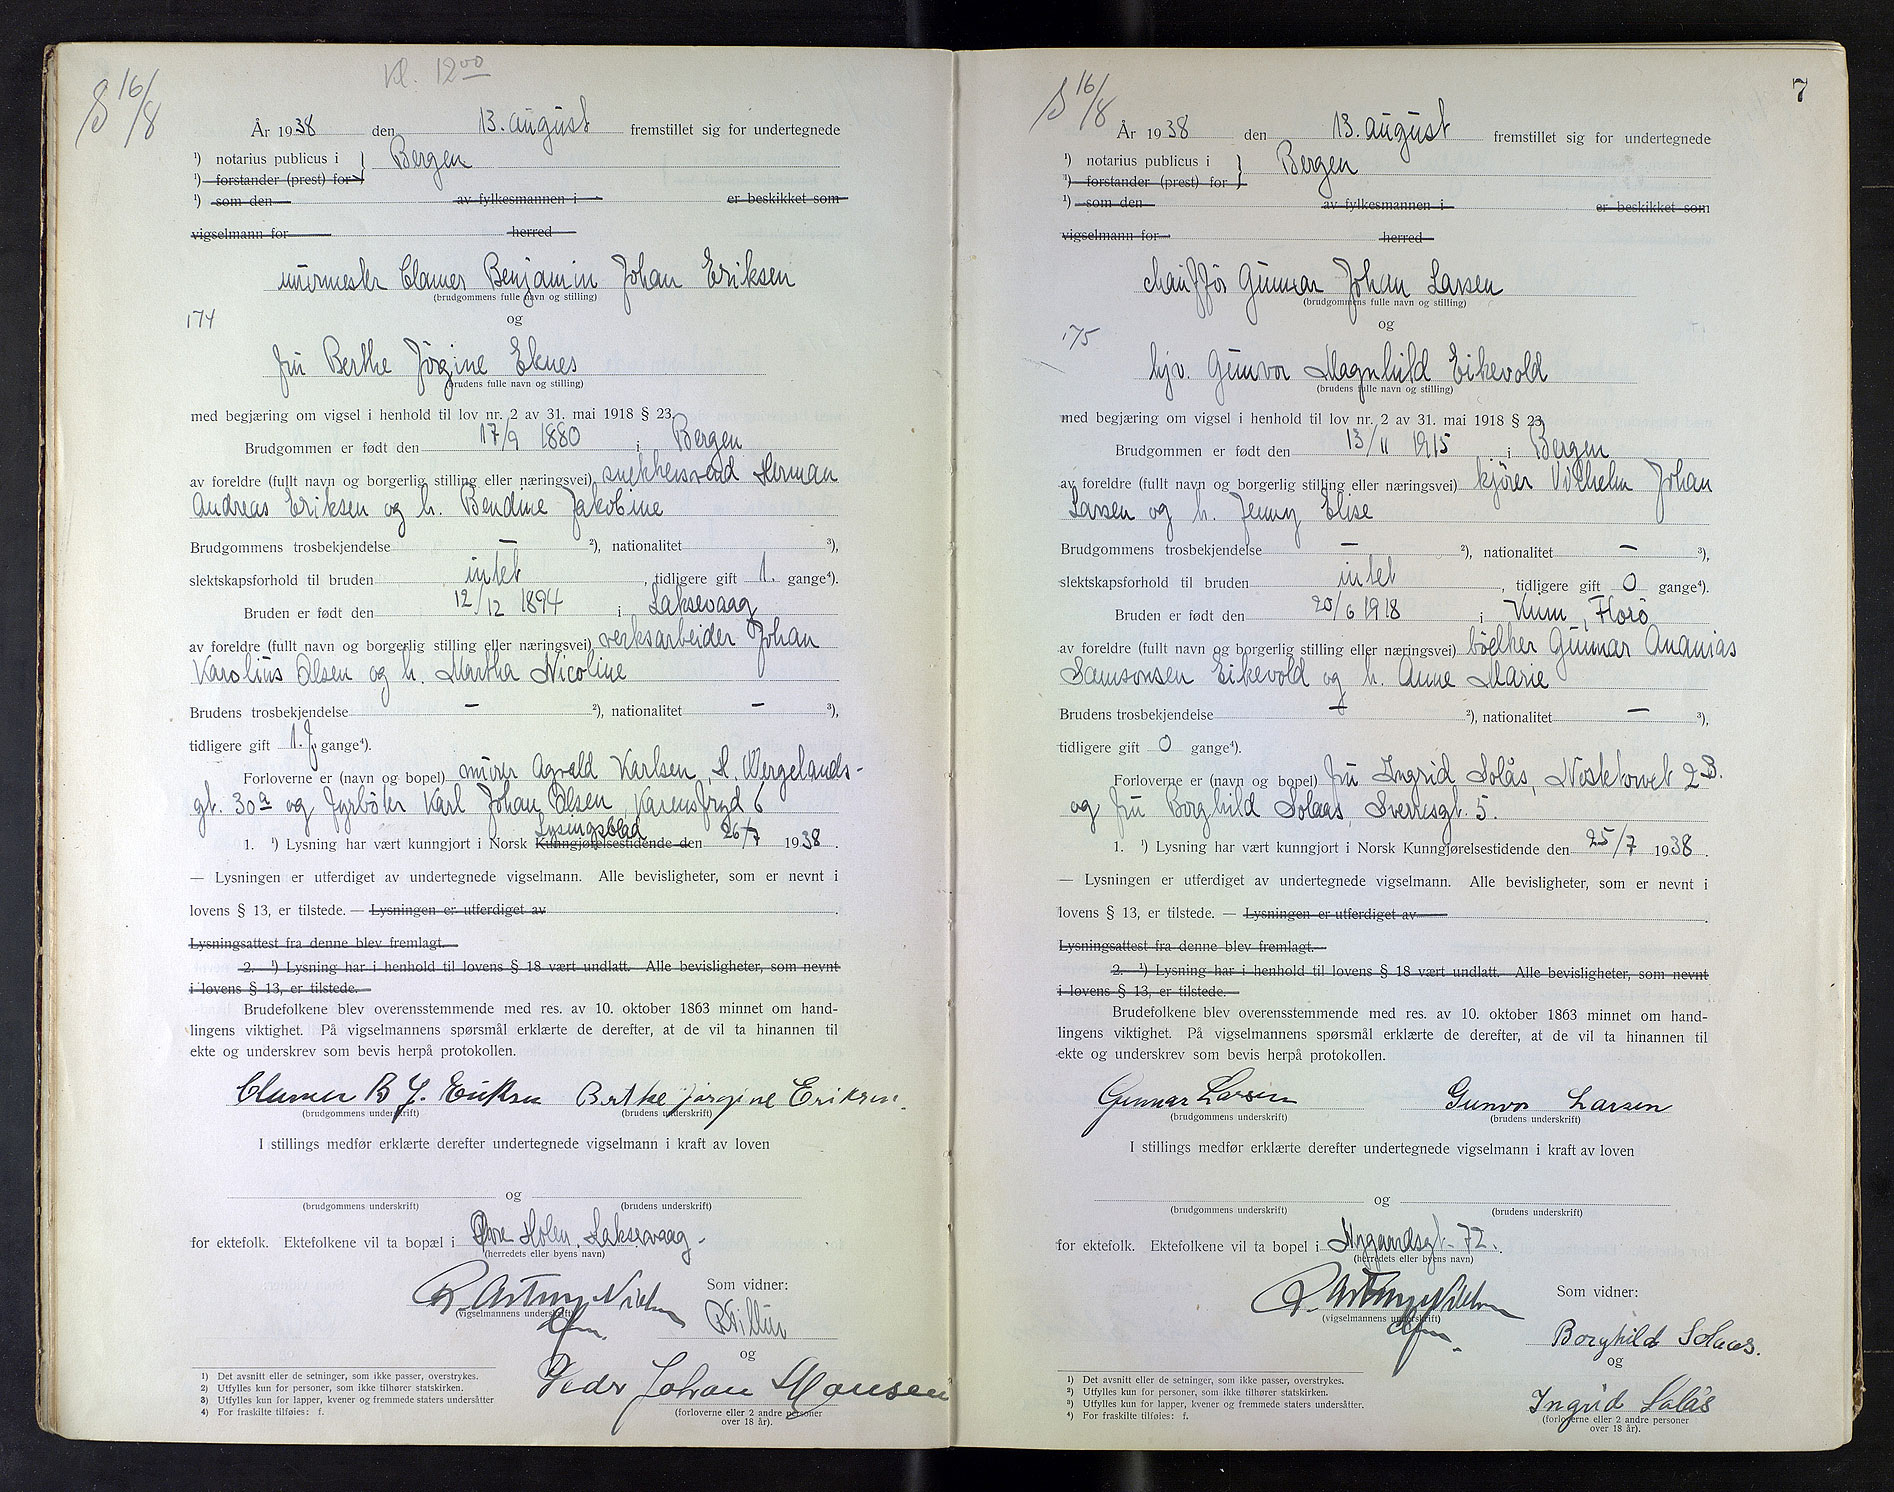 S 16/8
Kl. 12⁰⁰
År 1938 den 13. august fremstillet sig for undertegnede
¹) notarius publicus i } Bergen
¹) forstander (prest) for
¹) som den av fylkesmannen i er beskikket som
vigselmann for herred
murmester Clamer Benjamin Johan Eriksen
(brudgommens fulle navn og stilling)
174
og
fru Berthe Jörgine Eknes
(brudens fulle navn og stilling)
med begjæring om vigsel i henhold til lov nr. 2 av 31. mai 1918 § 23.
Brudgommen er født den 17/9 1880 i Bergen
av foreldre (fullt navn og borgerlig stilling eller næringsvei) snekkersvend Herman
Andreas Eriksen og h. Bendine Jakobine
Brudgommens trosbekjendelse — ²), nationalitet ³),
slektskapsforhold til bruden intet , tidligere gift 1. gange⁴).
Bruden er født den 12/12 1894 i Laksevaag
av foreldre (fullt navn og borgerlig stilling eller næringsvei) verksarbeider Johan
Karolius Olsen og h. Martha Nicoline
Brudens trosbekjendelse — ²), nationalitet — ³),
tidligere gift 1. f. gange⁴).
Forloverne er (navn og bopel) murer Agvald Karlsen, H. Wergelands-
gt. 30ª og fyrböter Karl Johan Olsen, Karensfryd 6
Lysingsblad
1. ¹) Lysning har vært kunngjort i Norsk Kunngjørelsestidende den 26/7 1938.
— Lysningen er utferdiget av undertegnede vigselmann. Alle bevisligheter, som er nevnt i
lovens § 13, er tilstede. — Lysningen er utferdiget av .
Lysningsattest fra denne blev fremlagt.
2. ¹) Lysning har i henhold til lovens § 18 vært undlatt. Alle bevisligheter, som nevnt
i lovens § 13, er tilstede.
Brudefolkene blev overensstemmende med res. av 10. oktober 1863 minnet om hand-
lingens viktighet. På vigselmannens spørsmål erklærte de derefter, at de vil ta hinannen til
ekte og underskrev som bevis herpå protokollen.
Clamer B J. Eriksen Berthe Jörgine Eriksen.
(brudgommens underskrift) (brudens underskrift)
I stillings medfør erklærte derefter undertegnede vigselmann i kraft av loven
og
(brudgommens underskrift) (brudens underskrift)
for ektefolk. Ektefolkene vil ta bopæl i Øvre Holen, Laksevaag.
(herredets eller byens navn)
(vigselmannens underskrift)
Som vidner:
og
Peder Johan Hansen
(forloverne eller 2 andre personer
over 18 år).
1) Det avsnitt eller de setninger, som ikke passer, overstrykes.
2) Utfylles kun for personer, som ikke tilhører statskirken.
3) Utfylles kun for lapper, kvener og fremmede staters undersåtter
4) For fraskilte tilføies: f.
7
S 16/8
År 1938 den 13. august fremstillet sig for undertegnede
¹) notarius publicus i } Bergen
¹) forstander (prest) for
¹) som den av fylkesmannen i er beskikket som
vigselmann for herred
chaufför Gunnar Johan Larsen
(brudgommens fulle navn og stilling)
175
og
hjv. Gunvor Magnhild Eikevold
(brudens fulle navn og stilling)
med begjæring om vigsel i henhold til lov nr. 2 av 31. mai 1918 § 23.
Brudgommen er født den 13/11 1915 i Bergen
av foreldre (fullt navn og borgerlig stilling eller næringsvei) kjörer Vilhelm Johan
Larsen og h. Jenny Elise
Brudgommens trosbekjendelse — ²), nationalitet — ³),
slektskapsforhold til bruden intet , tidligere gift 0 gange⁴).
Bruden er født den 20/6 1918 i Kinn, Florö
av foreldre (fullt navn og borgerlig stilling eller næringsvei) bödker Gunnar Ananias
Samsonsen Eikevold og h. Anne Marie
Brudens trosbekjendelse — ²), nationalitet — ³),
tidligere gift 0 gange⁴).
Forloverne er (navn og bopel) fru Ingrid Solås, Nöstetorvet 2 B.
og fru Borghild Solaas, Sverresgt. 5.
1. ¹) Lysning har vært kunngjort i Norsk Kunngjørelsestidende den 25/7 1938.
— Lysningen er utferdiget av undertegnede vigselmann. Alle bevisligheter, som er nevnt i
lovens § 13, er tilstede. — Lysningen er utferdiget av .
Lysningsattest fra denne blev fremlagt.
2. ¹) Lysning har i henhold til lovens § 18 vært undlatt. Alle bevisligheter, som nevnt
i lovens § 13, er tilstede.
Brudefolkene blev overensstemmende med res. av 10. oktober 1863 minnet om hand-
lingens viktighet. På vigselmannens spørsmål erklærte de derefter, at de vil ta hinannen til
ekte og underskrev som bevis herpå protokollen.
Gunnar Larsen Gunvor Larsen
(brudgommens underskrift) (brudens underskrift)
I stillings medfør erklærte derefter undertegnede vigselmann i kraft av loven
og
(brudgommens underskrift) (brudens underskrift)
for ektefolk. Ektefolkene vil ta bopel i Nygaardsgt. 72.
(herredets eller byens navn)
(vigselmannens underskrift)
Som vidner:
Borghild Solaas.
og
Ingrid Solås
(forloverne eller 2 andre personer
over 18 år).
1) Det avsnitt eller de setninger, som ikke passer, overstrykes.
2) Utfylles kun for personer, som ikke tilhører statskirken.
3) Utfylles kun for lapper, kvener og fremmede staters undersåtter.
4) For fraskilte tilføies: f.